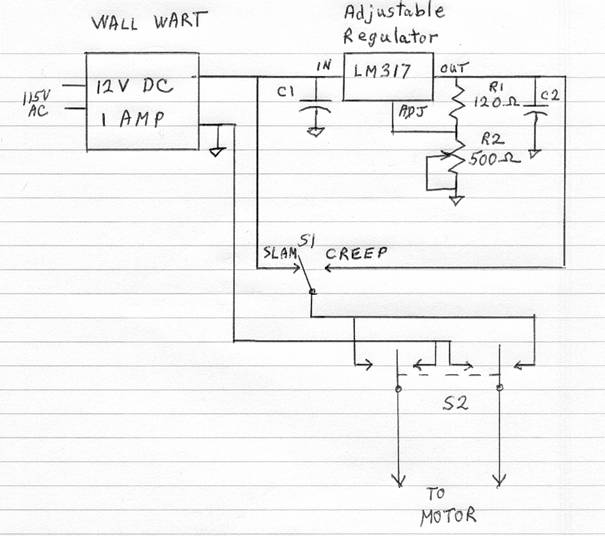 WALL WART
Adjustable
Regulator
115V
AC
12V DC
1 AMP
C1
IN
LM317
OUT
ADJ
R1
120Ω
C2
R2
500Ω
S1
SLAM
CREEP
S2
TO
MOTOR